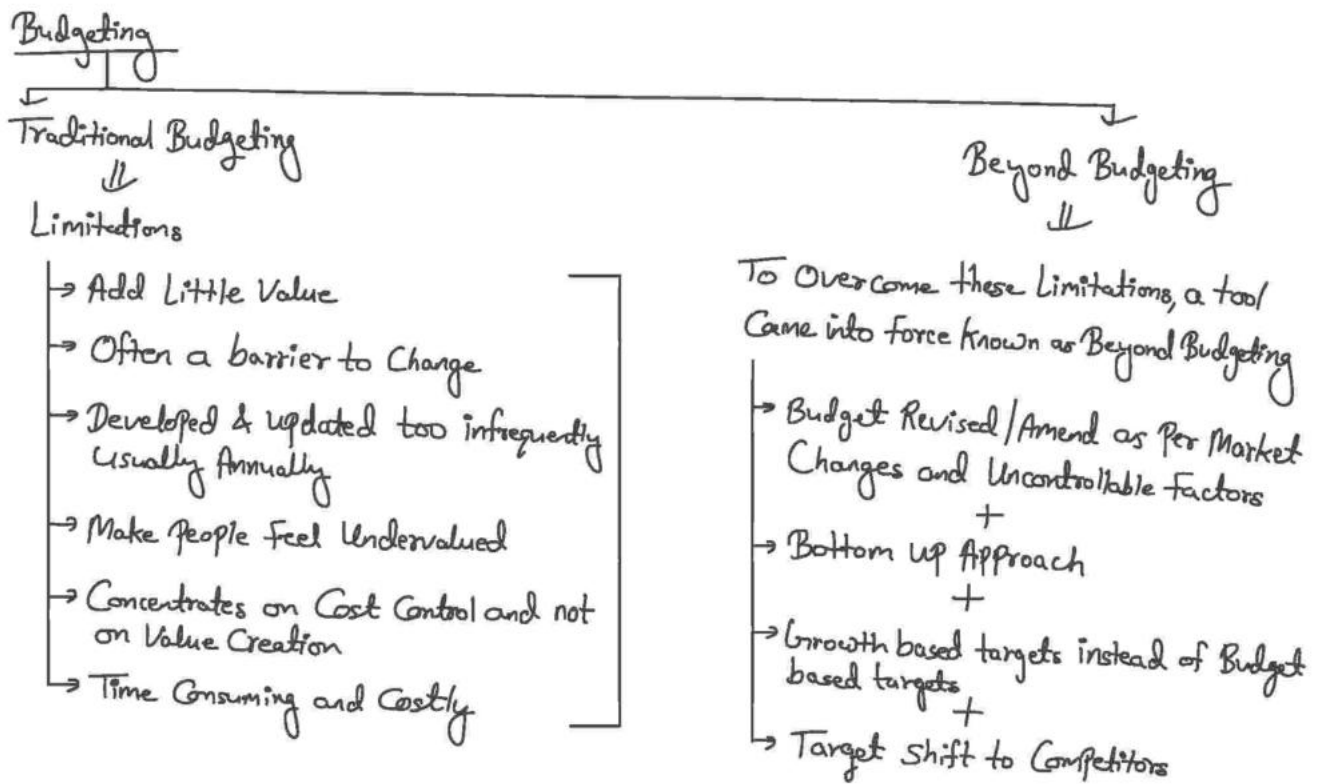 Budgeting
Traditional Budgeting
Limitations
Add Little Value
Often a barrier to Change
Developed & updated too infrequently
usually Annually
Make People Feel Undervalued
Concentrates on Cost Control and not
on Value Creation
Time Consuming and Costly
Beyond Budgeting
To Overcome these Limitations, a tool
Came into Force Known as Beyond Budgeting
Budget Revised/Amend as Per Market
Changes and Uncontrollable Factors
+
Bottom up Approach
+
Growth based targets instead of Budget
based targets
+
Target Shift to Competitors